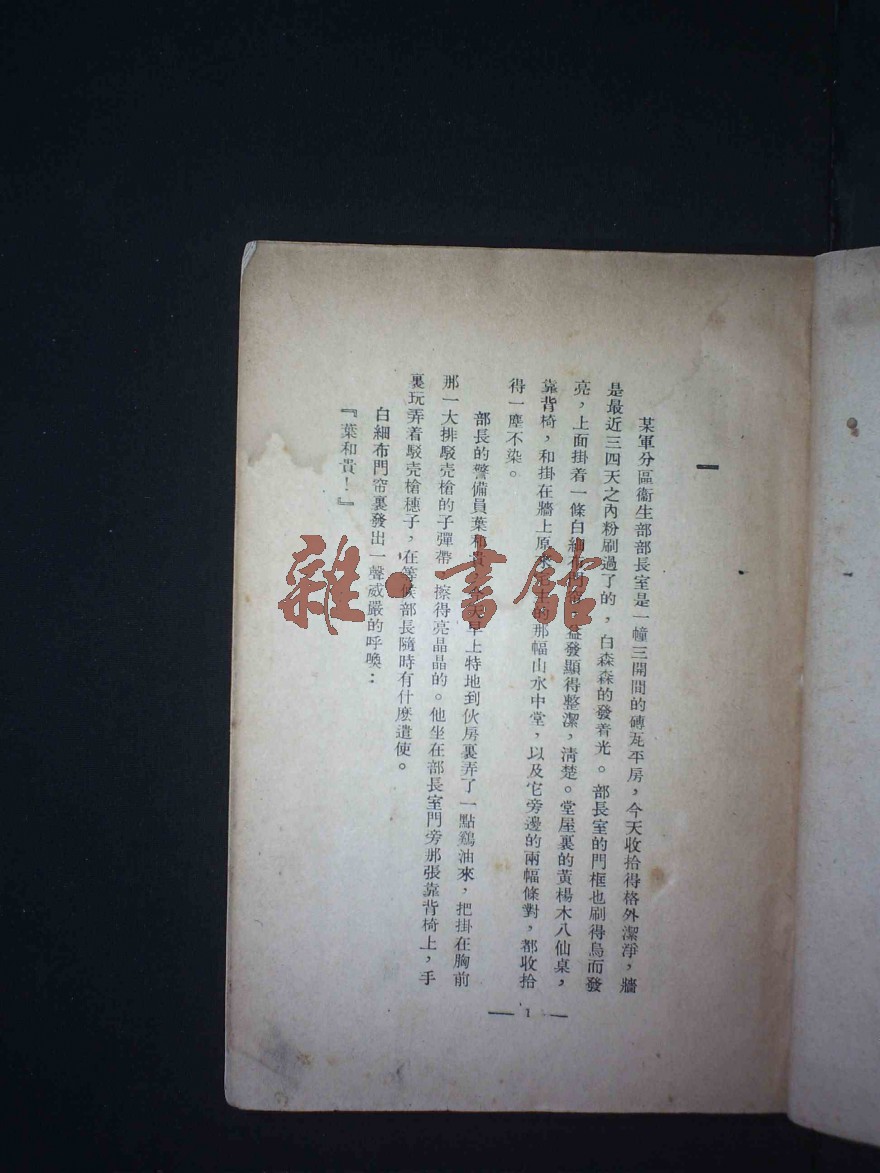 一
某軍分區衞生部部長室是一幢三開間的磚瓦平房，今天收拾得格外潔淨，牆
是最近三四天之內粉刷過了的，白森森的發着光。部長室的門框也刷得烏而發
亮，上面掛着一條白細布門帘，益發顯得整潔，清楚。堂屋裏的黃楊木八仙桌，
靠背椅，和掛在牆上原來的那幅山水中堂，以及它旁邊的兩幅條對，都收拾
得一塵不染。
部長的警備員葉和貴早上特地到伙房裏弄了一點鷄油來，把掛在胸前
那一大排駁壳槍的子彈帶擦得亮晶晶的。他坐在部長室門旁那張靠背椅上，手
裏玩弄着駁壳槍穗子，在等候部長隨時有什麽遣使。
白細布門帘裏發出一聲威嚴的呼喚：
『葉和貴！』
— 1 —
雜·書館